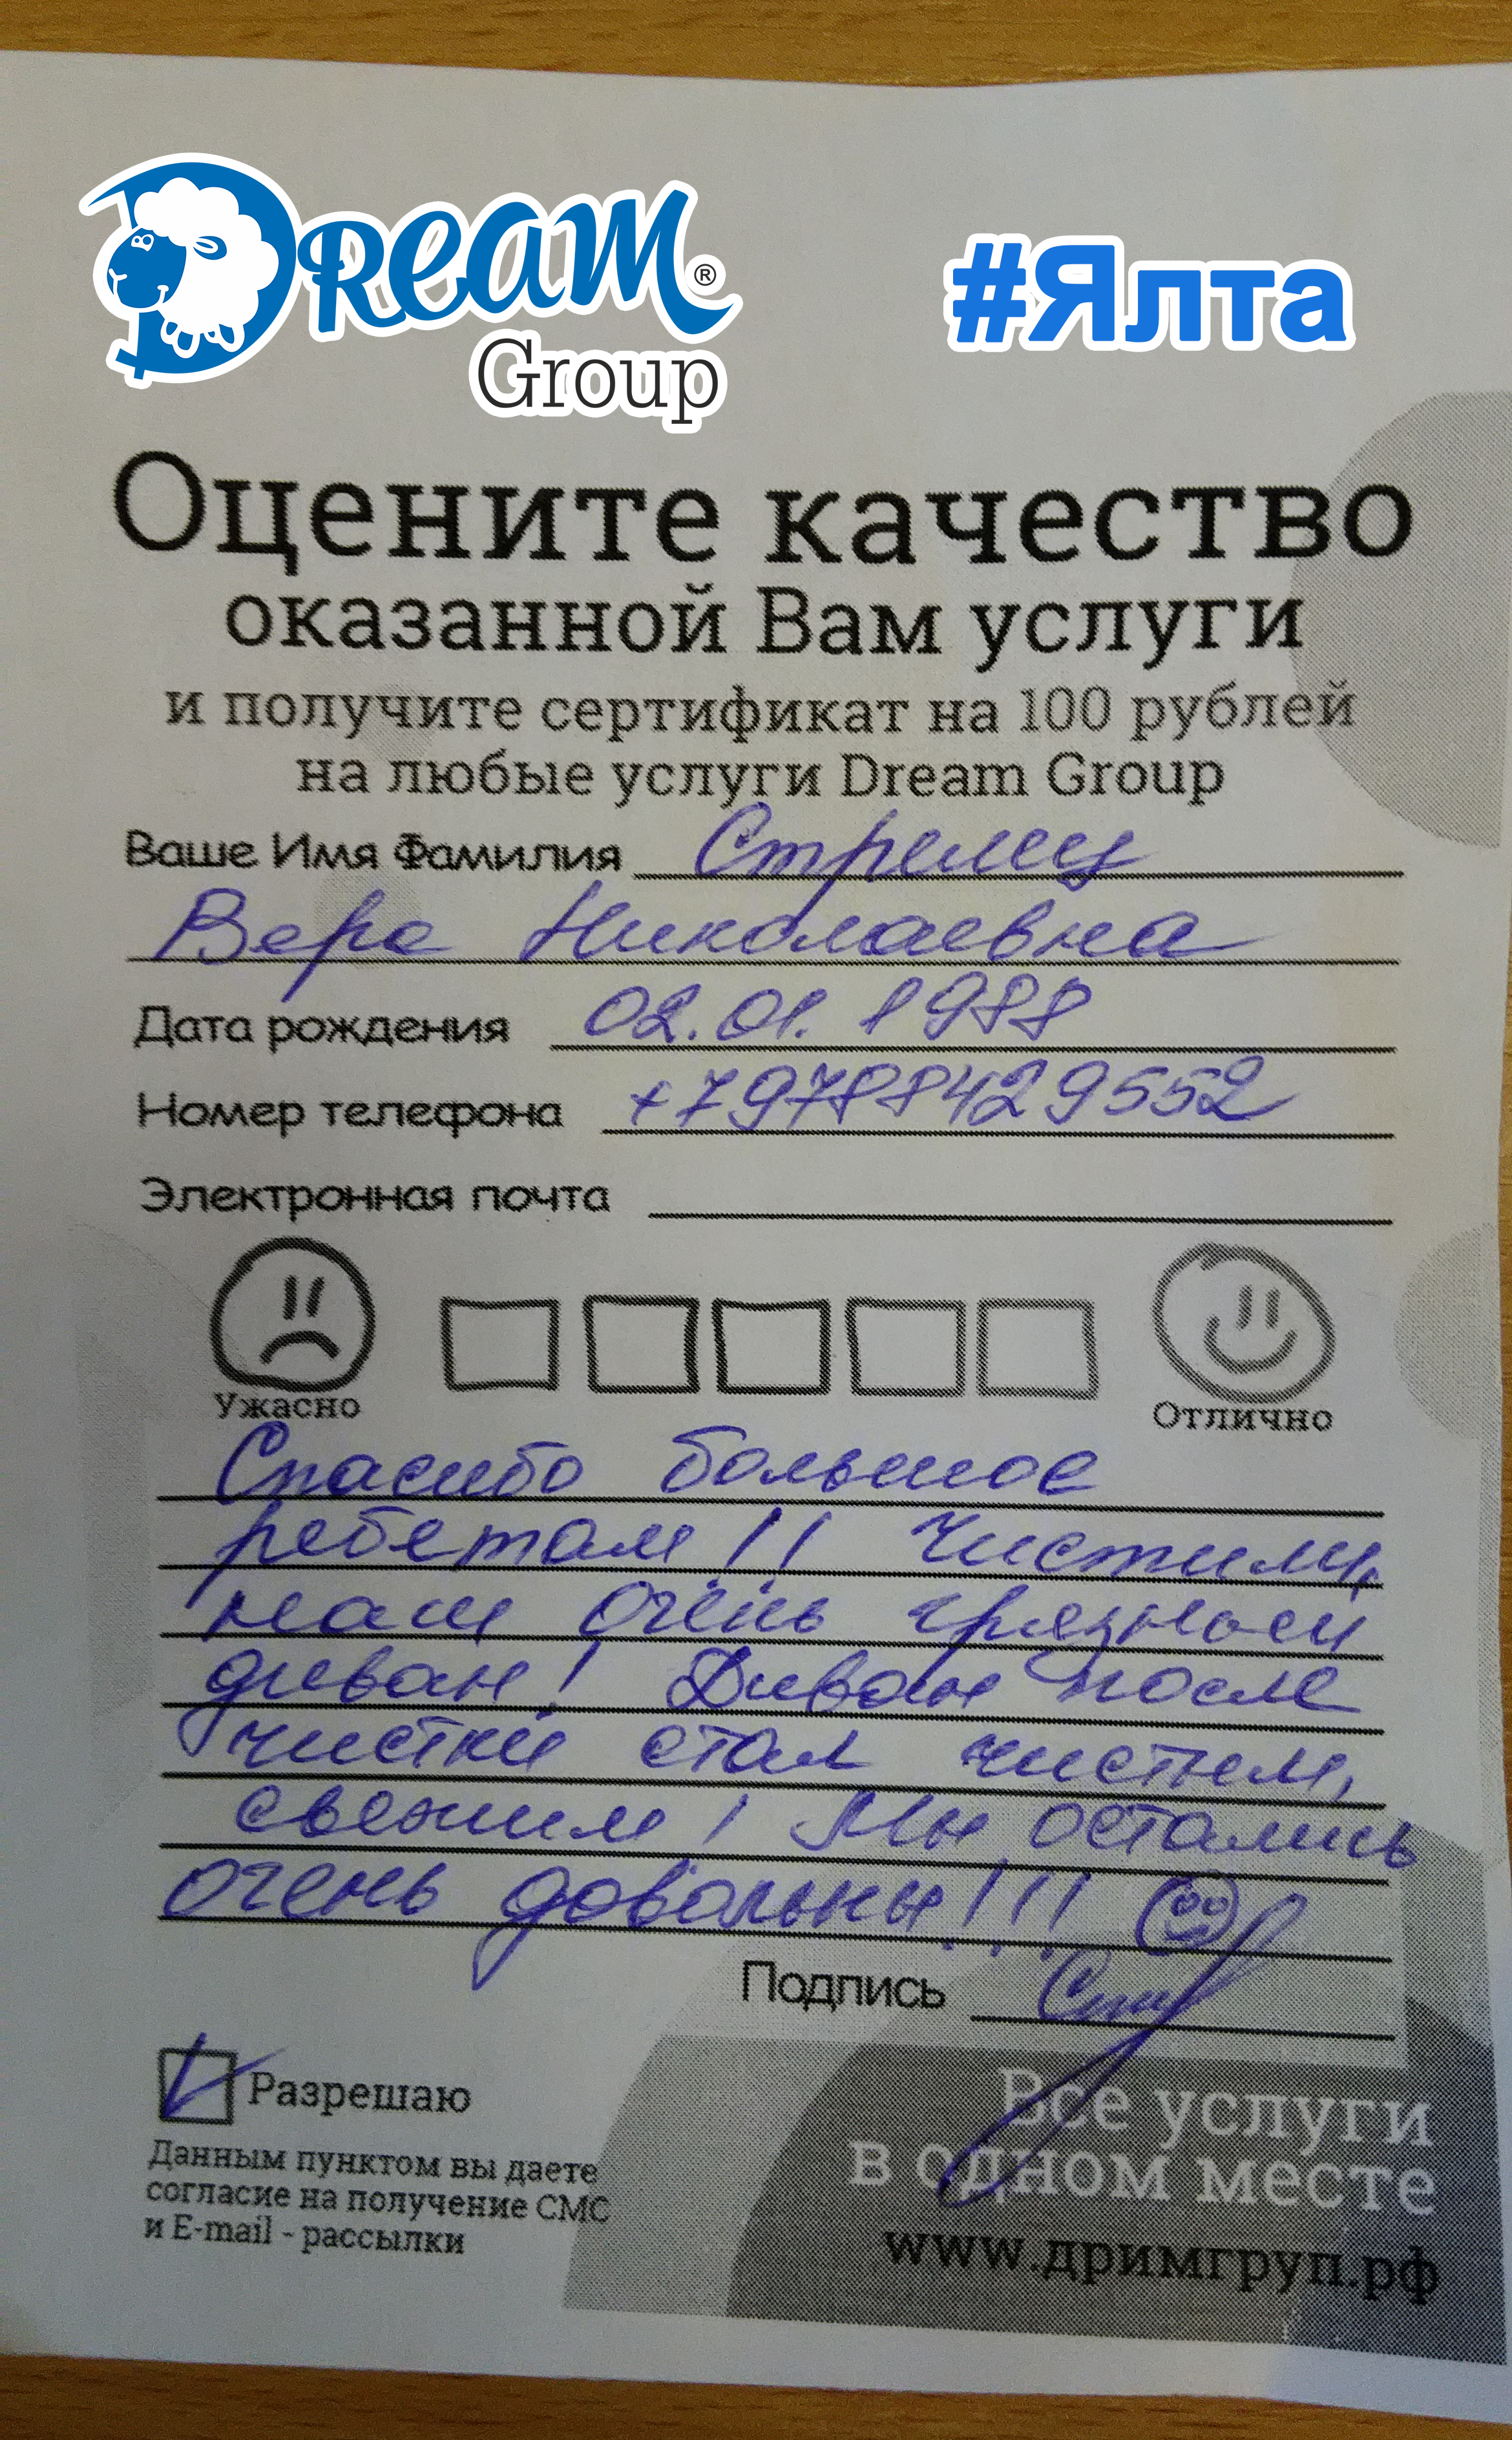 Dream®
Group
#Ялта
Оцените качество
оказанной Вам услуги
и получите сертификат на 100 рублей
на любые услуги Dream Group
Ваше Имя Фамилия Стрелец
Вера Николаевна
Дата рождения 02.01.1988
Номер телефона +79788429552
Электронная почта
Ужасно
Отлично
Спасибо большое
ребятам!! Чистили,
наш очень грязный
диван! Диван после
чистки стал чистым,
свежим! Мы остались
очень довольны!!!
Подпись
Разрешаю
Данным пунктом вы даете
согласие на получение СМС
и E-mail - рассылки
Все услуги
в одном месте
www.дримгруп.рф